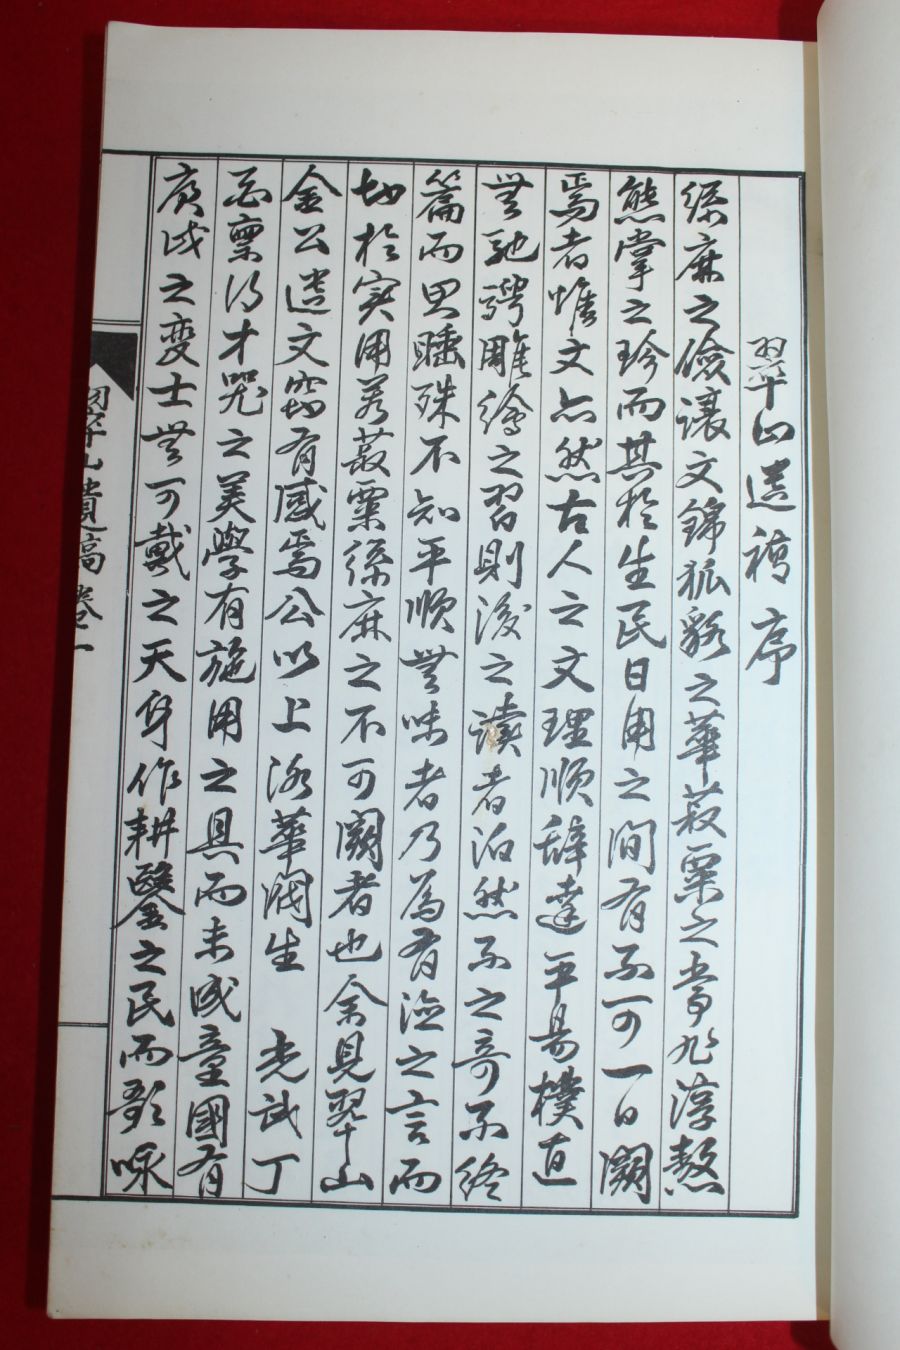 翠山遺稿序
絲麻之儉讓文錦狐貉之華菽粟之常非淳熬
熊掌之珍而其於生民日用之間有不可一日闕
焉者惟文亦然古人之文理順辭達平易樸直
無馳騁雕繪之習則後之讀者泊然不之奇不終
篇而思睡殊不知平順無味者乃爲有德之言而
切於實用若菽粟絲麻之不可闕者也余見翠山
金公遺文竊有感焉公以上洛華閥生 光武丁
未稟得才器之美學有施用之具而未成童國有
庚戌之変士無可戴之天身作耕鑿之民而歌咏
翠山遺稿卷一